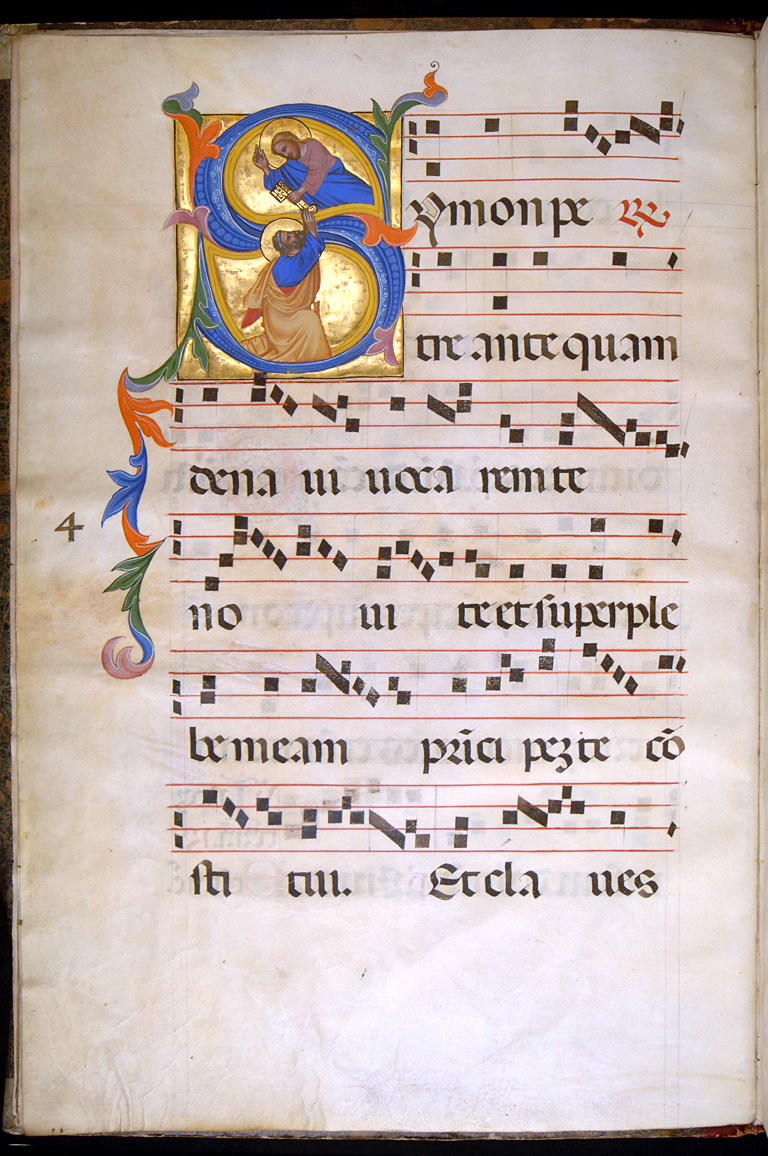 Symon pe R
tre ante quam
de na ui uoca rem te
no ui te et super ple
be meam prīci pez te cō
sti tui. Et cla ues
4